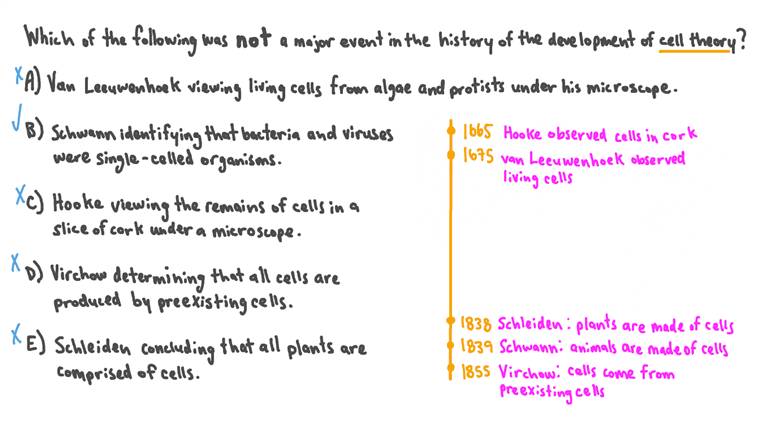 Which of the following was not a major event in the history of the development of cell theory?
A) Van Leeuwenhoek viewing living cells from algae and protists under his microscope.
B) Schwann identifying that bacteria and viruses
were single-celled organisms.
C) Hooke viewing the remains of cells in a
slice of cork under a microscope.
D) Virchow determining that all cells are
produced by preexisting cells.
E) Schleiden concluding that all plants are
comprised of cells.
1665 Hooke observed cells in cork
1675 van Leeuwenhoek observed
living cells
1838 Schleiden: plants are made of cells
1839 Schwann: animals are made of cells
1855 Virchow: cells come from
preexisting cells